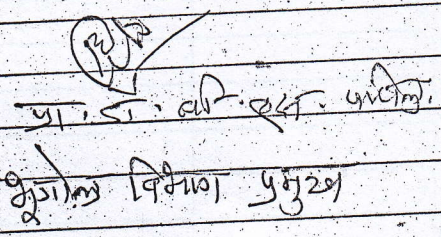 प्रा. डॉ. व्ही. एस. पाटील.
भूगोल विभाग प्रमुख